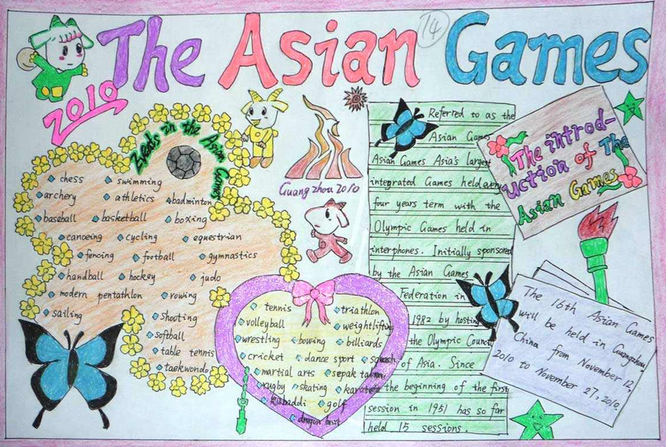 14
The Asian Games
2010
Events in the Asian Games
chess swimming
archery athletics badminton
baseball basketball boxing
canoeing cycling equestrian
fencing football gymnastics
handball hockey judo
modern pentathlon rowing
sailing shooting
softball
table tennis
taekwondo
Guangzhou 2010
tennis triathlon
volleyball weightlifting
wrestling bowing billiards
cricket dance sport squash
martial arts sepak takraw
rugby skating karate
kabaddi golf
dragon boat
Referred to as the
Asian Games
Asian Games Asia's largest
integrated Games held every
four years term with the
Olympic Games held in
interphones. Initially sponsored
by the Asian Games
Federation in
1982 by hosting
the Olympic Council
of Asia. Since
the beginning of the first
session in 1951 has so far
held 15 sessions.
The introd-
uction of The
Asian Games
The 16th Asian Games
will be held in Guangzhou
China from November 12,
2010 to November 27, 2010